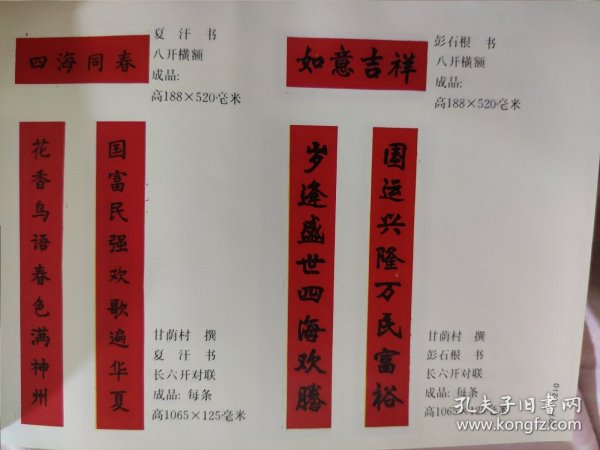 四海同春
夏 汗 书
八开横额
成品:
高188×520毫米
国富民强欢歌遍华夏
花香鸟语春色满神州
甘荫村 撰
夏 汗 书
长六开对联
成品: 每条
高1065×125毫米
如意吉祥
彭石根 书
八开横额
成品:
高188×520毫米
国运兴隆万民富裕
岁逢盛世四海欢腾
甘荫村 撰
彭石根 书
长六开对联
成品: 每条
高1065
毫米
孔夫子旧书网
www.kongfz.com